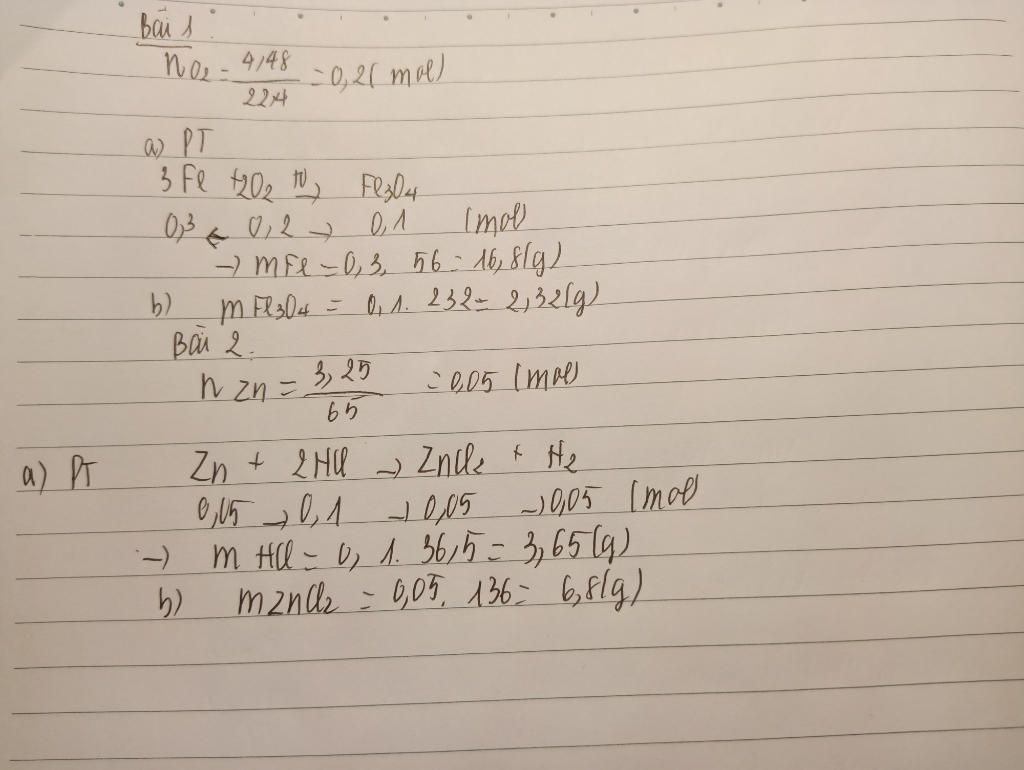 Bài 1.
nO2 = 4,48 / 22,4 = 0,2 ( mol)
a) PT
3 Fe + 2O2 t° → Fe3O4
0,3 ← 0,2 → 0,1 (mol)
→ mFe = 0,3. 56 = 16,8(g)
b) mFe3O4 = 0,1. 232 = 2,32(g)
Bài 2.
n Zn = 3,25 / 65 = 0,05 (mol)
a) PT Zn + 2HCl → ZnCl2 + H2
0,05 → 0,1 → 0,05 → 0,05 (mol)
→ m HCl = 0,1. 36,5 = 3,65(g)
b) mZnCl2 = 0,05. 136 = 6,8(g)